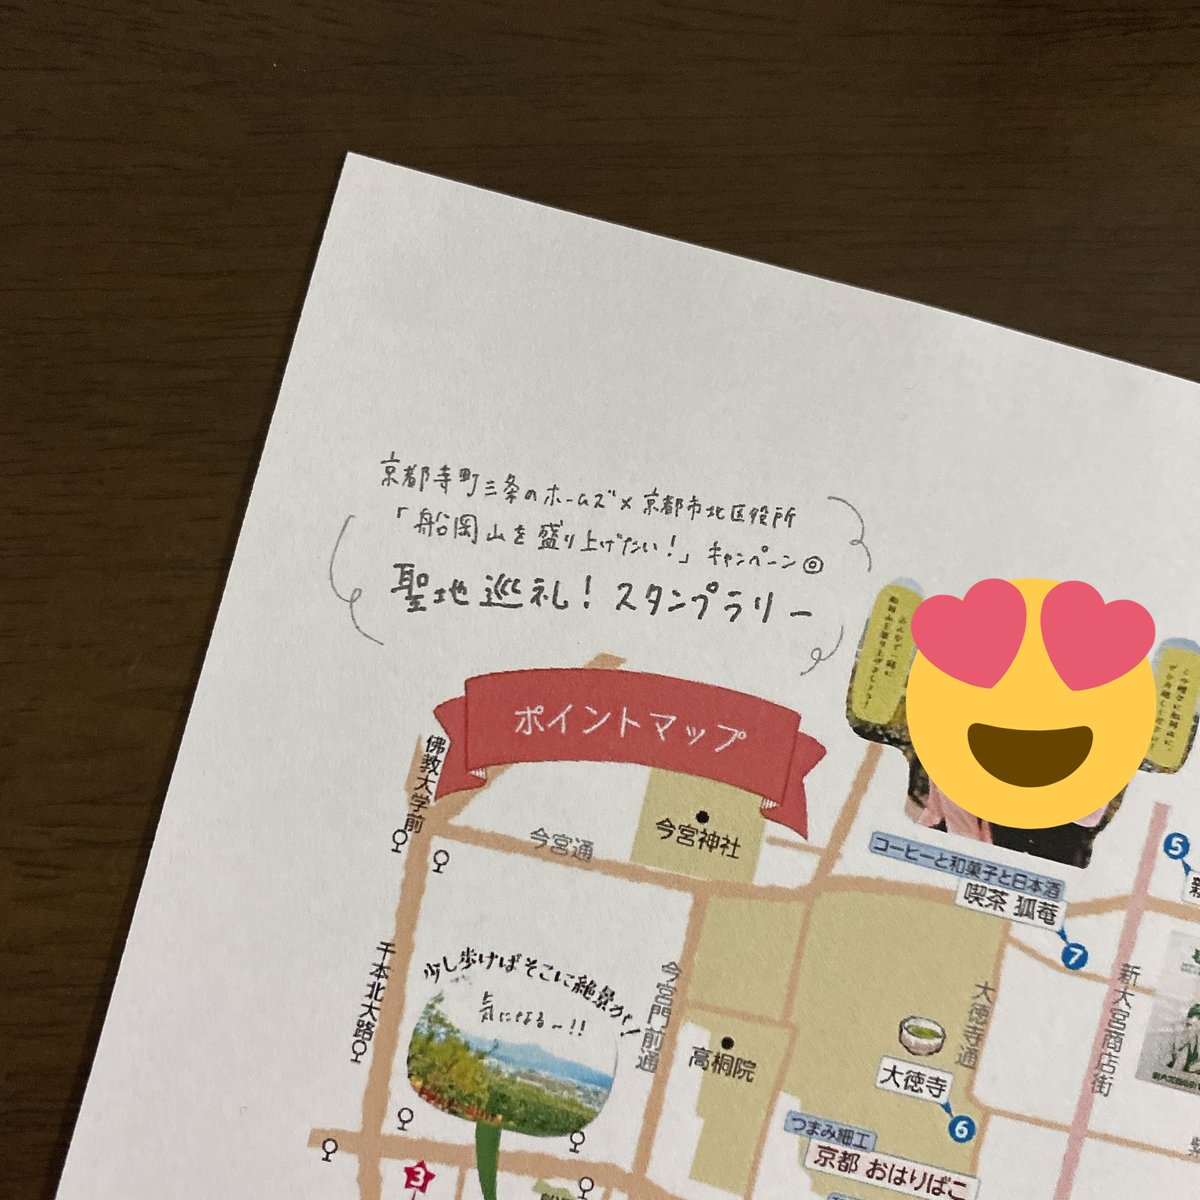 京都寺町三条のホームズ×京都市北区役所
「船岡山を盛り上げたい!」キャンペーン◎
聖地巡礼!スタンプラリー
ポイントマップ
佛教大学前
今宮通
今宮神社
コーヒーと和菓子と日本酒
喫茶 狐菴
5
7
千本北大路
少し歩けばそこに絶景が!
気になる〜!!
今宮門前通
高桐院
大徳寺通
新大宮商店街
大徳寺
6
つまみ細工
京都 おはりばこ
3